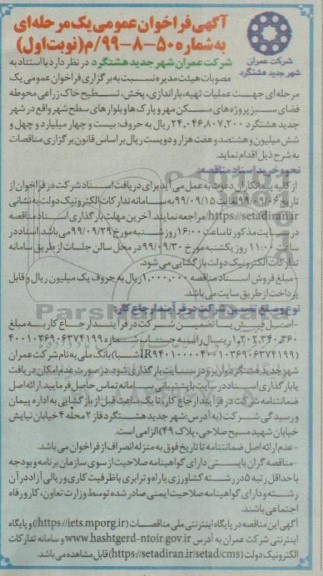 آگهی فراخوان عمومی یک مرحله‌ای
به شماره ۵۰-۸-۹۹/م (نوبت اول)
شرکت عمران
شهر جدید هشتگرد
شرکت عمران شهر جدید هشتگرد در نظر دارد با استناد به
مصوبات هیئت مدیره نسبت به برگزاری فراخوان عمومی یک
مرحله‌ای جهت عملیات تهیه، باراندازی، پخش، تسطیح خاک زراعی محوطه
فضای سبز پروژه‌های مسکن مهر و پارک‌ها و بلوارهای سطح شهر واقع در شهر
جدید هشتگرد ۲۴،۰۴۶،۸۰۷،۲۰۰ ریال به حروف: بیست و چهار میلیارد و چهل و
شش میلیون و هشتصد و هفت هزار و دویست ریال بر اساس قانون برگزاری مناقصات
به شرح ذیل اقدام نماید.
نحوه خرید اسناد مناقصه:
از کلیه پیمانکاران دعوت به عمل می‌آید برای دریافت اسناد شرکت در فراخوان از
لغایت ۹۹/۰۹/۱۵ به سامانه تدارکات الکترونیک دولت به نشانی
https://setadiran.ir مراجعه نمایند. آخرین مهلت بارگذاری اسناد مناقصه
در سایت مذکور تا ساعت ۱۶:۰۰ روز شنبه مورخ ۹۹/۰۹/۲۹ می‌باشد اسناد در
ساعت ۱۱:۰۰ روز یکشنبه مورخ ۹۹/۰۹/۳۰ در محل سالن جلسات از طریق سامانه
تدارکات الکترونیک دولت بازگشایی می‌شود.
مبلغ فروش اسناد مناقصه ۱،۰۰۰،۰۰۰ ریال به حروف یک میلیون ریال و قابل
پرداخت از طریق سایت می‌باشد.
شرکت در فرآیند ارجاع کار:
شرکت در فرآیند ارجاع کار به مبلغ
۱،۲۰۲،۳۴۰،۳۶۰ ریال
بانک ملی به نام شرکت عمران
شهر جدید هشتگرد در سایت بارگذاری شود. در صورت عدم امکان دریافت
یا بارگذاری اسناد در سایت با پشتیبانی سامانه تماس حاصل فرمایید ارائه اصل
ضمانتنامه شرکت در فرآیند ارجاع کار، تا یک ساعت قبل از بازگشایی به اداره پیمان
و رسیدگی شرکت (به آدرس: شهر جدید هشتگرد فاز ۲ محله ۴ خیابان نیایش
خیابان شهید مسیح صلاحی، پلاک ۴۹) الزامی است.
- عدم ارائه اصل ضمانتنامه تا تاریخ فوق به منزله انصراف از فراخوان می‌باشد.
- مناقصه گران بایستی دارای گواهینامه صلاحیت از سوی سازمان برنامه و بودجه
با حداقل رتبه ۵ در رشته کشاورزی یا راه و ترابری با ظرفیت کاری و ریالی آزاد در آن
رشته و دارای گواهینامه صلاحیت ایمنی صادر شده توسط وزارت تعاون، کار و رفاه
اجتماعی باشند.
آگهی این مناقصه در پایگاه اینترنتی ملی مناقصات (https://iets.mporg.ir) و پایگاه
اینترنتی شرکت عمران به آدرس www.hashtgerd-ntoir.gov.ir و سامانه تدارکات
الکترونیک دولت (https://setadiran.ir/setad/cms) قابل مشاهده می‌باشد.